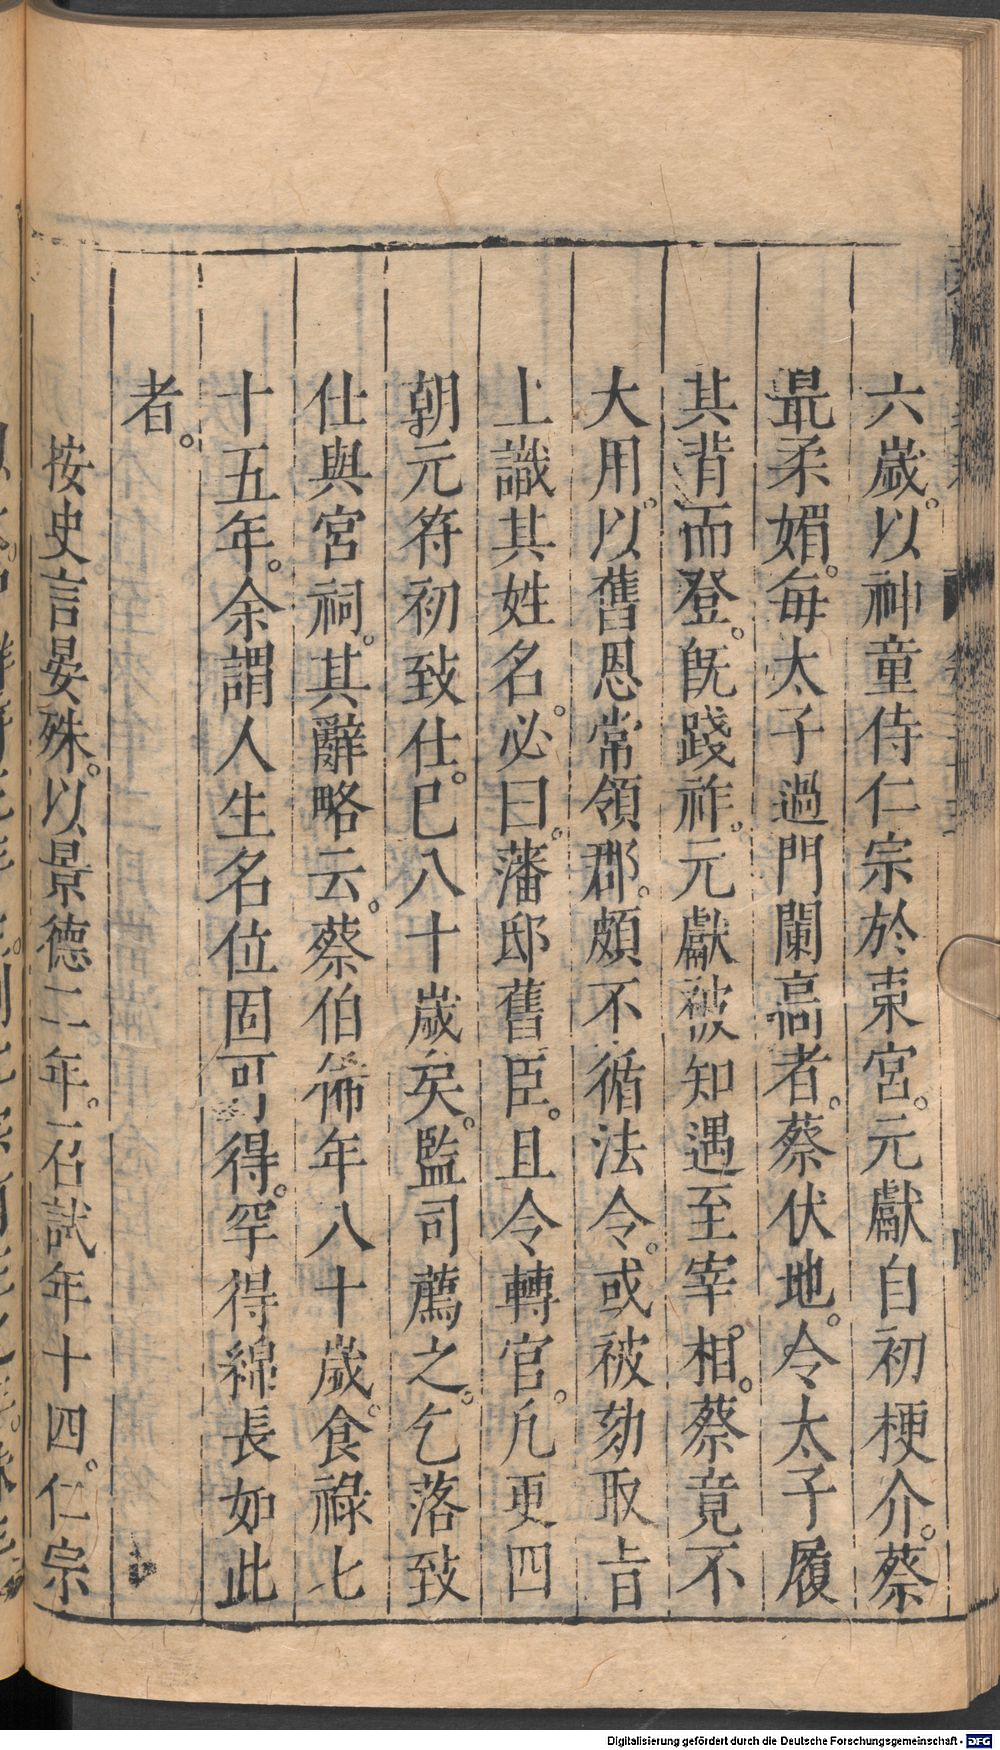 六歲。以神童侍仁宗於東宮。元獻自初梗介。蔡
最柔媚。每太子過門闌高者。蔡伏地。令太子履
其背而登。旣踐祚。元獻被知遇至宰相。蔡竟不
大用。以舊恩常領郡。頗不循法令。或被劾取旨
上識其姓名。必曰。藩邸舊臣。且令轉官。凡更四
朝元符初致仕。已八十歲矣。監司薦之。乞落致
仕與宮祠。其辭略云。蔡伯俙年八十歲。食祿七
十五年。余謂人生名位固可得。罕得綿長如此
者。
按史言晏殊。以景德二年。召試年十四。仁宗
Digitalisierung gefördert durch die Deutsche Forschungsgemeinschaft - DFG